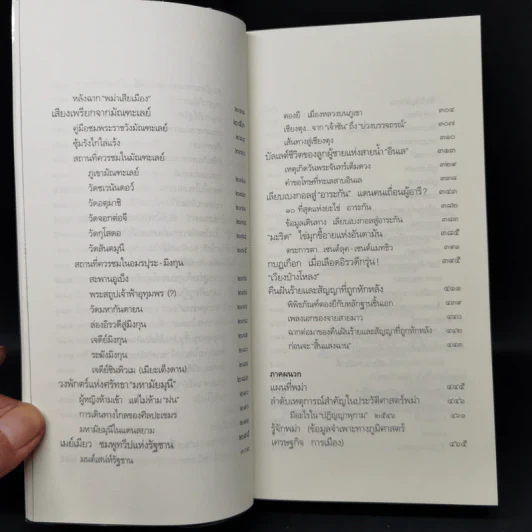 หลังฉาก "พม่าเสียเมือง"
เสียงเพรียกจากมัณฑะเลย์
คู่มือชมพระราชวังมัณฑะเลย์
ซุ้มรังไก่ไล่แร้ง
สถานที่ควรชมในมัณฑะเลย์
ภูเขามัณฑะเลย์
วัดชเวนันดอว์
วัดอตุมาชิ
วัดจอกต่อจี
วัดกุโสดอ
วัดสันตมุนี
สถานที่ควรชมในอมรปุระ - มิงกุน
สะพานอูเบ็ง
พระสถูปเจ้าฟ้าอุทุมพร (?)
วัดมหากันดายน
ล่องอิรวดีสู่มิงกุน
เจดีย์มิงกุน
ระฆังมิงกุน
เจดีย์ชินพิวเม (เมียะเต็งดาน)
วงพักตร์แห่งศรัทธา "มหามัยมุนี"
ผู้หญิงห้ามเข้า แต่ไม่ห้าม "ฝน"
การเดินทางไกลของศิลปะเขมร
มหามัยมุนีในแดนสยาม
เมย์เมียว ชมพูทวีปแห่งรัฐฉาน
มนต์เสน่ห์รัฐฉาน
ตองยี : เมืองหลวงบนภูเขา ๓๐๔
เชียงตุง...จาก "เจ้าชัน" ถึง "บ่วงบรรจถรณ์" ๓๐๗
เส้นทางสู่เชียงตุง ๓๑๐
บัลเลต์ชีวิตของลูกผู้ชายแห่งสายน้ำ "อินเล"
เหตุเกิดวันพระจันทร์เต็มดวง
คำขอโทษที่ทะเลสาบอินเล
เลียบเบงกอลสู่ "อาระกัน" แดนคนเถื่อนผู้อารี ?
๑๐ ที่สุดแห่งยะไข่ : อาระกัน
ข้อมูลเดินทาง : เลียบเบงกอลสู่อาระกัน
"มะริด" ไข่มุกซื้อายแห่งอันดามัน ๓๘๕
ตะระการตา...เซนต์ลุค - เซนต์แมทธิว
กบฏเกือก เมื่อเลือดอิรวดีกรุ่น !
"เวียงป่างโหลง"
คืนฝันร้ายและสัญญาที่ถูกหักหลัง
พิพิธภัณฑ์ตองยีกับหลักฐานชิ้นเอก
เพลงเอกของจายสายมาว
ฉากต่อมาของคืนฝันร้ายและสัญญาที่ถูกหักหลัง ๔๔๒
ก่อนจะ "สิ้นแสงฉาน"
ภาคผนวก
แผนที่พม่า ๔๔๕
ลำดับเหตุการณ์สำคัญในประวัติศาสตร์พม่า ๔๔๖
มีอะไรใน "ปฏิญญาพุกาม" ๒๕๔๖ ๔๖๑
รู้จักพม่า (ข้อมูลจำเพาะทางภูมิศาสตร์
เศรษฐกิจ การเมือง) ๔๖๕